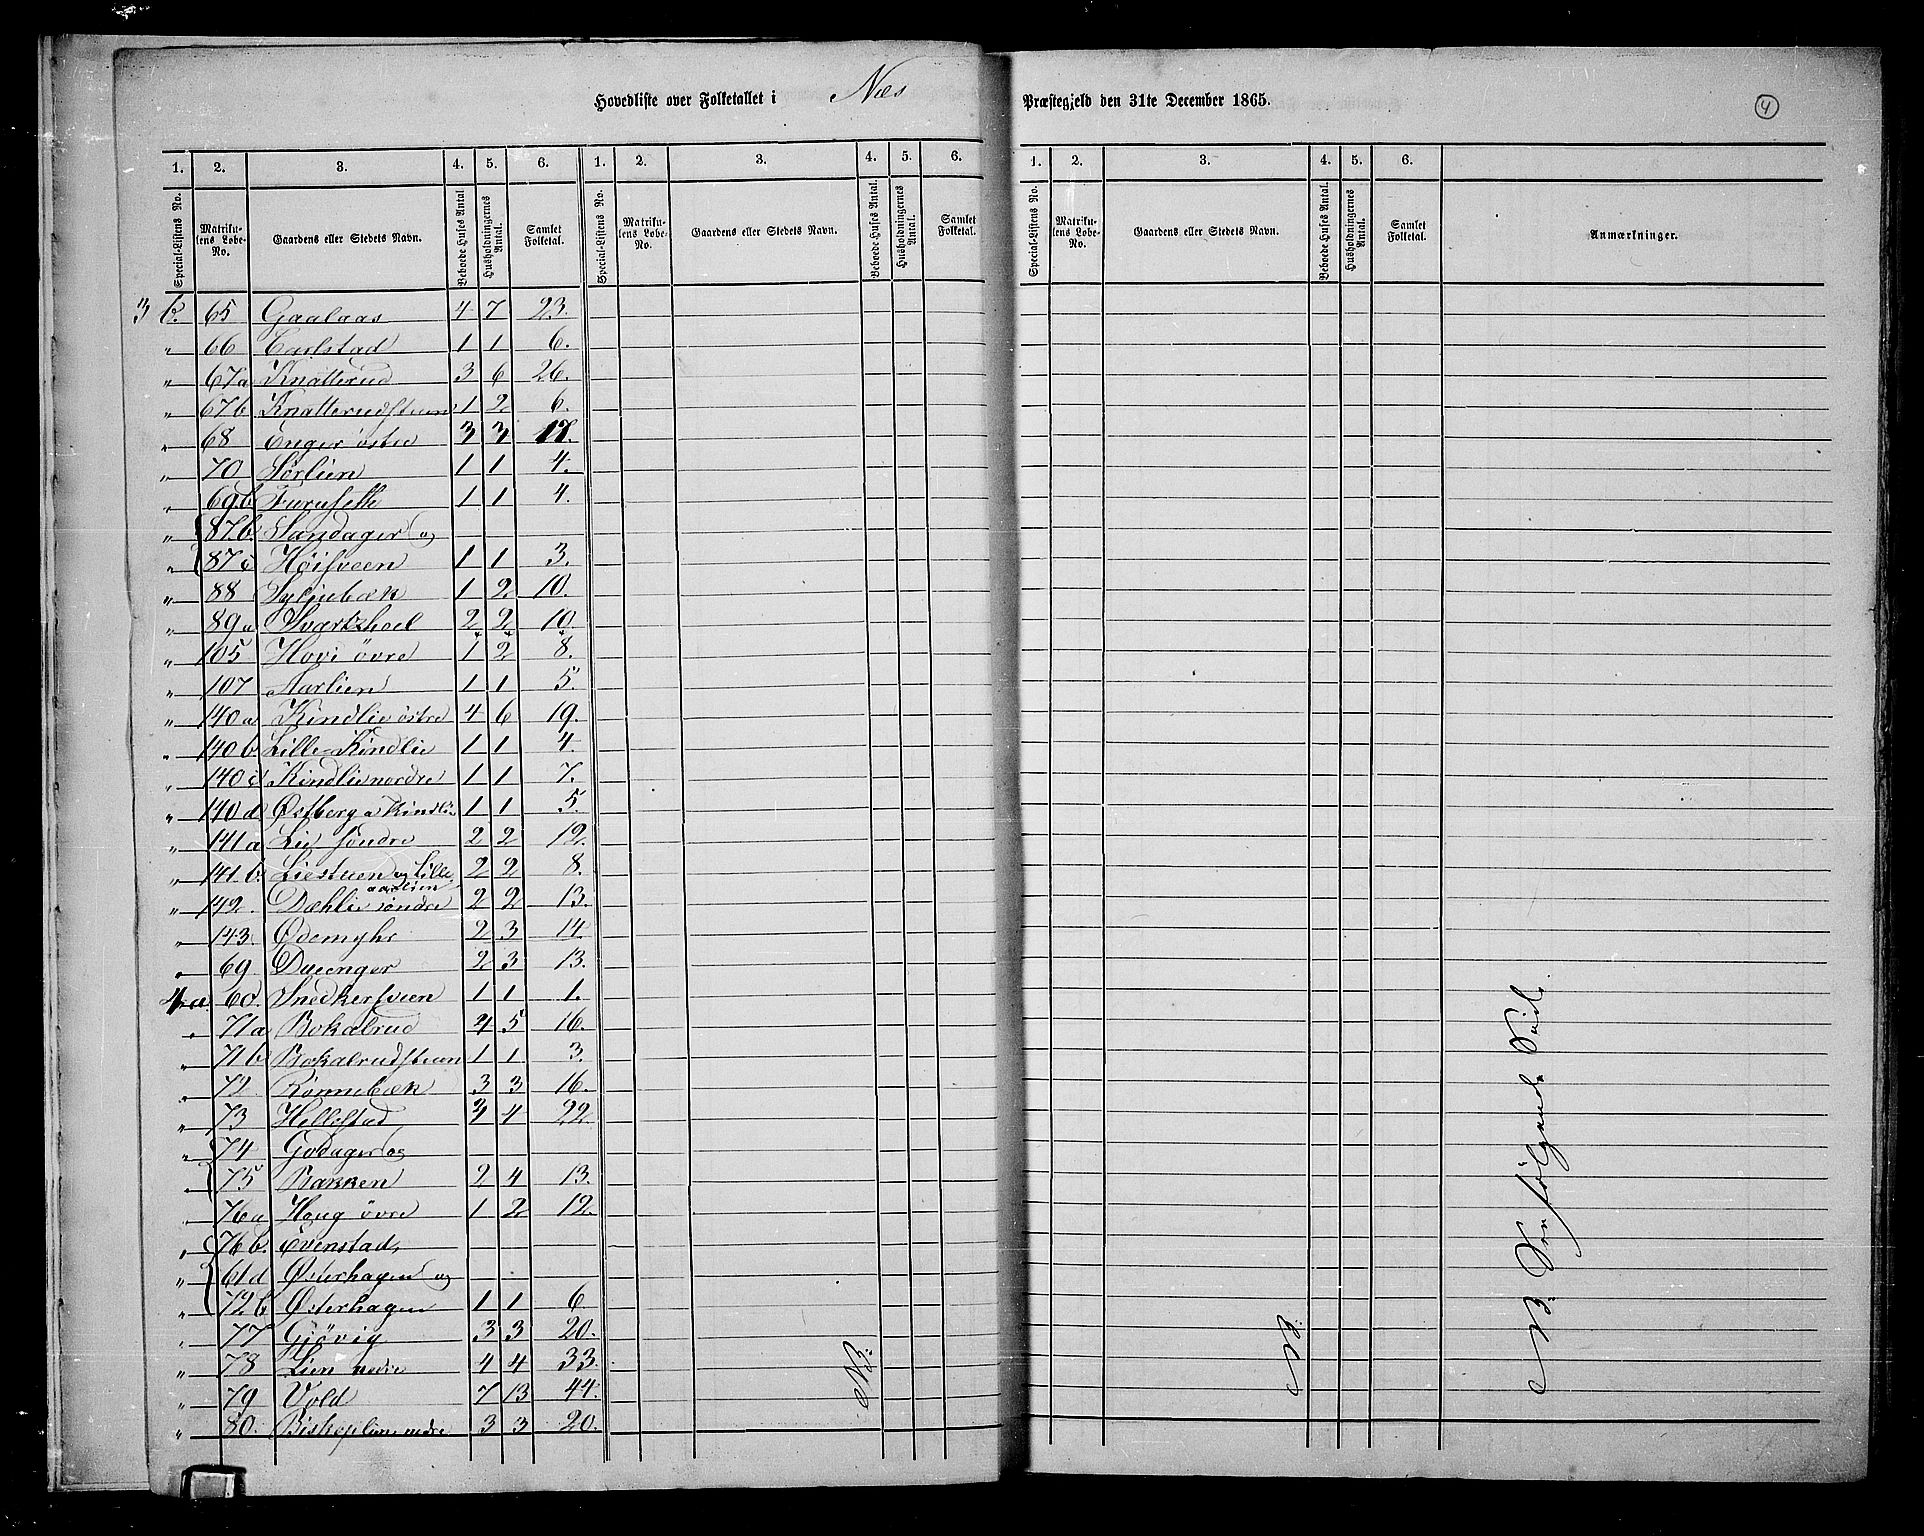 Hovedliste over Folketallet i Næs Præstegjeld den 31te December 1865.
4
1. 2. 3. 4. 5. 6. 1. 2. 3. 4. 5. 6. 1. 2. 3. 4. 5. 6.
Special-Listens No. Matrikulens Løbe-No. Gaardens eller Stedets Navn. Beboede Huses Antal. Husholdningernes Antal. Samlet Folketal. Special-Listens No. Matrikulens Løbe-No. Gaardens eller Stedets Navn. Beboede Huses Antal. Husholdningernes Antal. Samlet Folketal. Special-Listens No. Matrikulens Løbe-No. Gaardens eller Stedets Navn. Beboede Huses Antal. Husholdningernes Antal. Samlet Folketal. Anmærkninger.
3 b. 65 Gaalaas 4 7 23.
" 66 Carlstad 1 1 6.
" 67a Knatterud 3 6 26.
" 67b Knatterudstuen 1 2 6.
" 68 Enger østre 3 3 17.
" 70 Sørlien 1 1 4.
" 69b Furuseth 1 1 4.
" 87b. Sandager og
" 87c Høisveen 1 1 3.
" 88 Syljubæk 1 2 10.
" 89a Svartshoel 2 2 10.
" 105 Hovi øvre 1 2 8.
" 107 Aarlien 1 1 5.
" 140a Kindlie østre 4 6 19.
" 140b Lille-Kindlie 1 1 4.
" 140c Kindlie nordre 1 1 7.
" 140d Østberg a Kindlie 1 1 5.
" 141a Lie søndre 2 2 12.
" 141.b. Liestuen og Lille aarlien 2 2 8.
" 142. Dæhlie søndre 2 2 13.
" 143. Ødemyhr 2 3 14
" 69. Duenger 2 3 13.
4 a 60. Snedkersveen 1 1 1.
" 71a Bokalrud 4 5 16.
" 71b Bokalrudstuen 1 1 3.
" 72. Rønnebæk 3 3 16.
" 73 Hellestad 4 22.
" 74 Godager og
" 75 Bakken 2 4 13.
" 76a Houg øvre 1 2 12.
" 76b. Evenstad,
" 61d Østerhagen og
" 72b Østerhagen 1 1 6
" 77 Gjövig 3 3 20.
" 78 Lien nedre 4 4 33.
" 79 Vold 7 13 44.
" 80. Biskoplien nedre 3 3 20.
NB.
NB.
NB. Se følgende Side